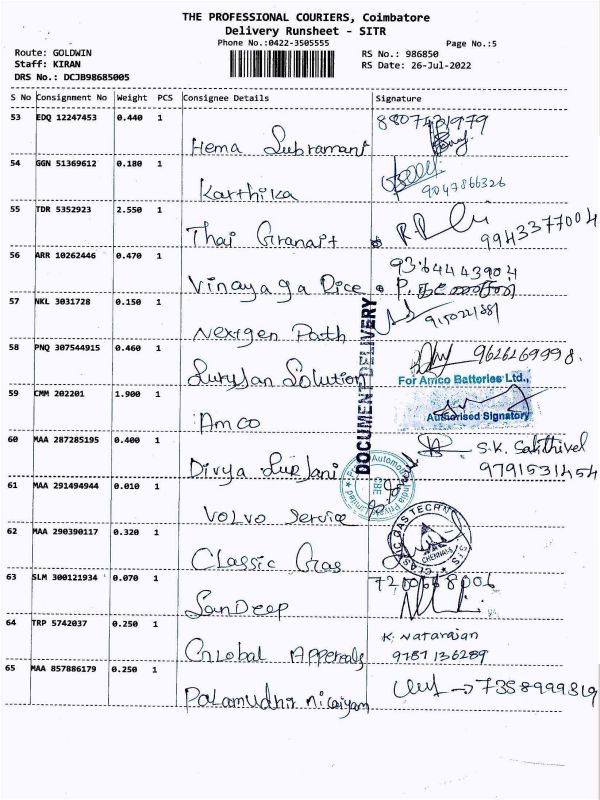 THE PROFESSIONAL COURIERS, Coimbatore
Delivery Runsheet - SITR
Phone No.:0422-3505555
Page No.:5
Route: GOLDWIN
Staff: KIRAN
DRS No.: DCJB98685005
RS No.: 986850
RS Date: 26-Jul-2022
S No Consignment No Weight PCS Consignee Details Signature
53 EDQ 12247453 0.440 1 8807431979
Hema Subramani
54 GGN 51369612 0.180 1
Karthika 9047866326
55 TDR 5352923 2.550 1
Thai Granait 9943377004
56 ARR 10262446 0.470 1 9364443904
Vinayaga Dice P.
57 NKL 3031728 0.150 1
Nexigen Path
58 PNQ 307544915 0.460 1 9626269998.
Solution
DOCUMENT DELIVERY
59 CMM 202201 1.900 1 For Amco Batteries Ltd.,
Authorised Signatory
Amco
60 MAA 287285195 0.400 1 S.K. Sakthivel
Divya 9791531454
61 MAA 291494944 0.010 1
Automotive India Private Limited
CBE
Volvo Service
62 MAA 290390117 0.320 1
CLASSIC GAS TECH
CHENNAI
Classic Gas
63 SLM 300121934 0.070 1
SanDeep
64 TRP 5742037 0.250 1 K. Natarajan
Global Apperals 9787136289
65 MAA 857886179 0.250 1 7358999819
Palamudhir nilaiyam